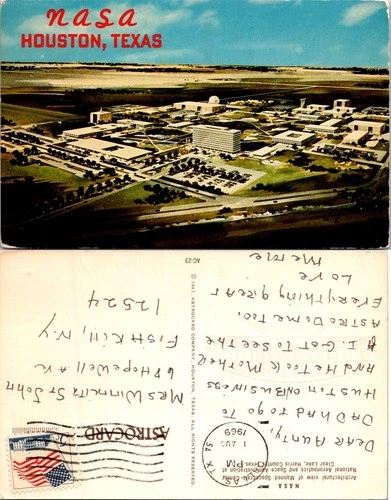 NASA
HOUSTON, TEXAS
AC-23
NASA
Architectural view of Manned Spacecraft Center
National Aeronautics and Space Administration at
Clear Lake, Harris County, Texas.
Dear Aunty,
Dad had to go to
Huston on Business
and he took Mother
& I. Got to see the
Astro Dome too.
Everything great
Love
Meme
© 1967, ASTROCARD COMPANY, HOUSTON, TEXAS, ALL RIGHTS RESERVED.
ASTROCARD
1 AUG
PM
1969
Mrs St John
68 Hopewell Ave
Fishkill, N-Y
12524